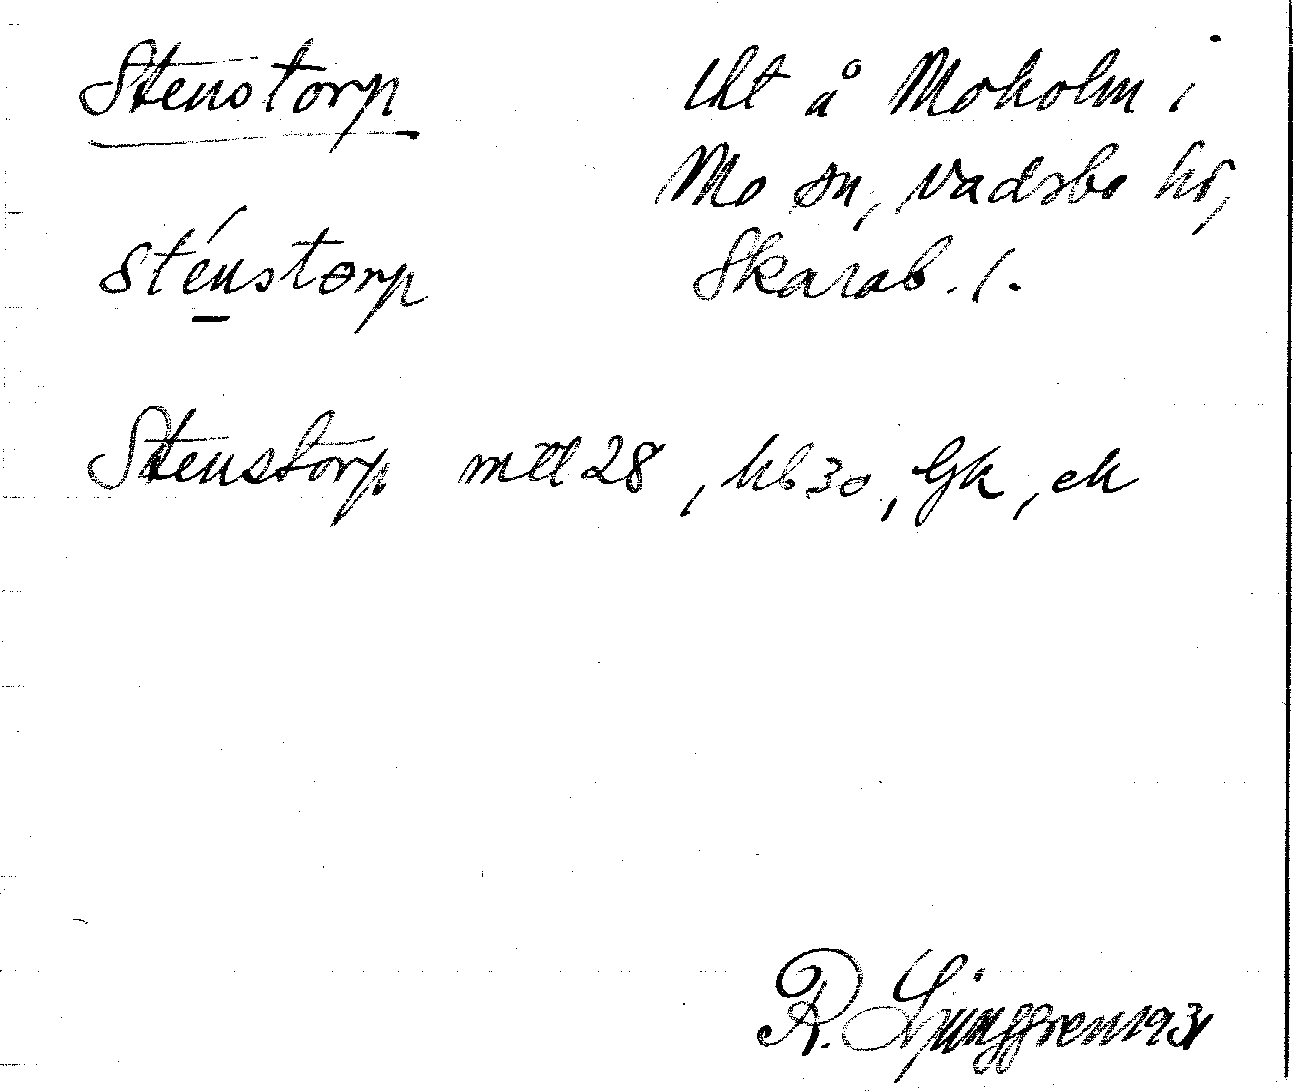 Stenstorp lht å Moholm i
Mo sn, Vadsbo hd,
Sténstorp Skarab. l.
Stenstorp mtl 28, hb 30, Gk, ek
R. Ljunggren 1931